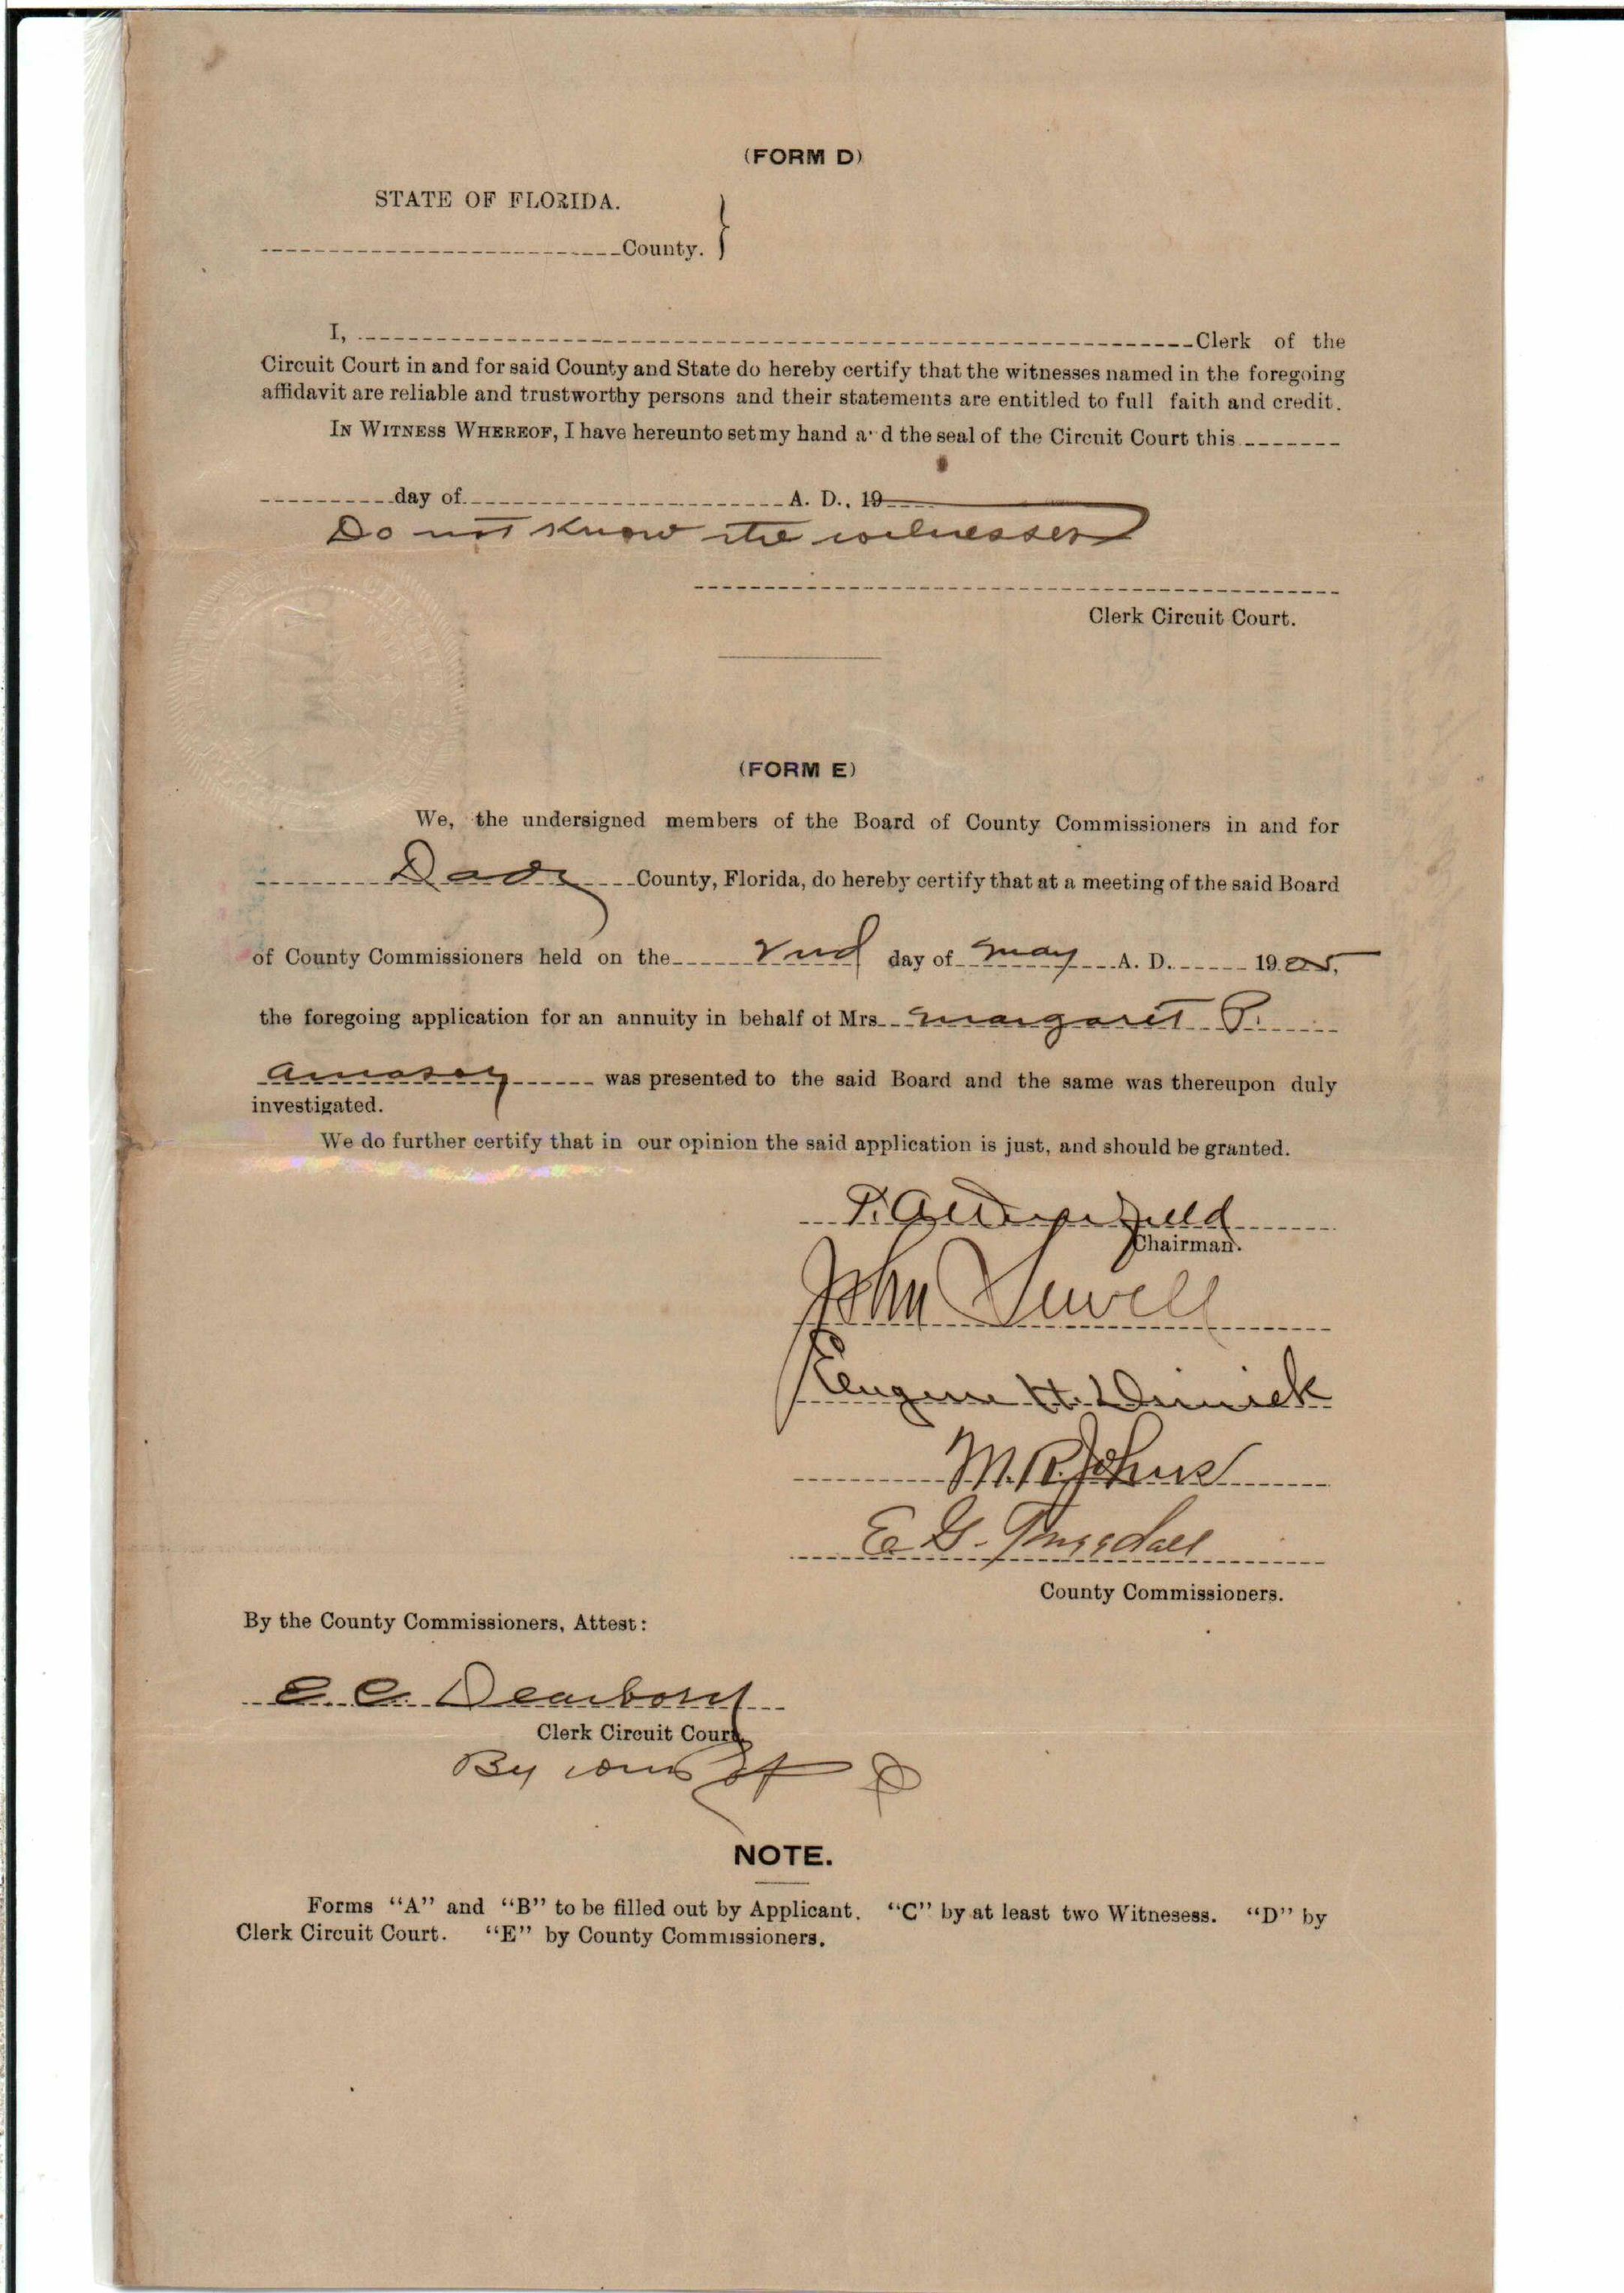 (FORM D)
STATE OF FLORIDA.
County. }
I, Clerk of the
Circuit Court in and for said County and State do hereby certify that the witnesses named in the foregoing
affidavit are reliable and trustworthy persons and their statements are entitled to full faith and credit.
IN WITNESS WHEREOF, I have hereunto set my hand a d the seal of the Circuit Court this
day of A. D., 19
Do not know the witnesses
Clerk Circuit Court.
(FORM E)
We, the undersigned members of the Board of County Commissioners in and for
Dade County, Florida, do hereby certify that at a meeting of the said Board
of County Commissioners held on the 2nd day of May A. D. 1905,
the foregoing application for an annuity in behalf of Mrs Margaret P.
Amason was presented to the said Board and the same was thereupon duly
investigated.
We do further certify that in our opinion the said application is just, and should be granted.
Chairman.
John Sewell
Eugene H. Dimick
M. R. Johns
E. G.
County Commissioners.
By the County Commissioners, Attest:
E. C. Dearborn
Clerk Circuit Court.
By
NOTE.
Forms "A" and "B" to be filled out by Applicant. "C" by at least two Witnesess. "D" by
Clerk Circuit Court. "E" by County Commissioners.